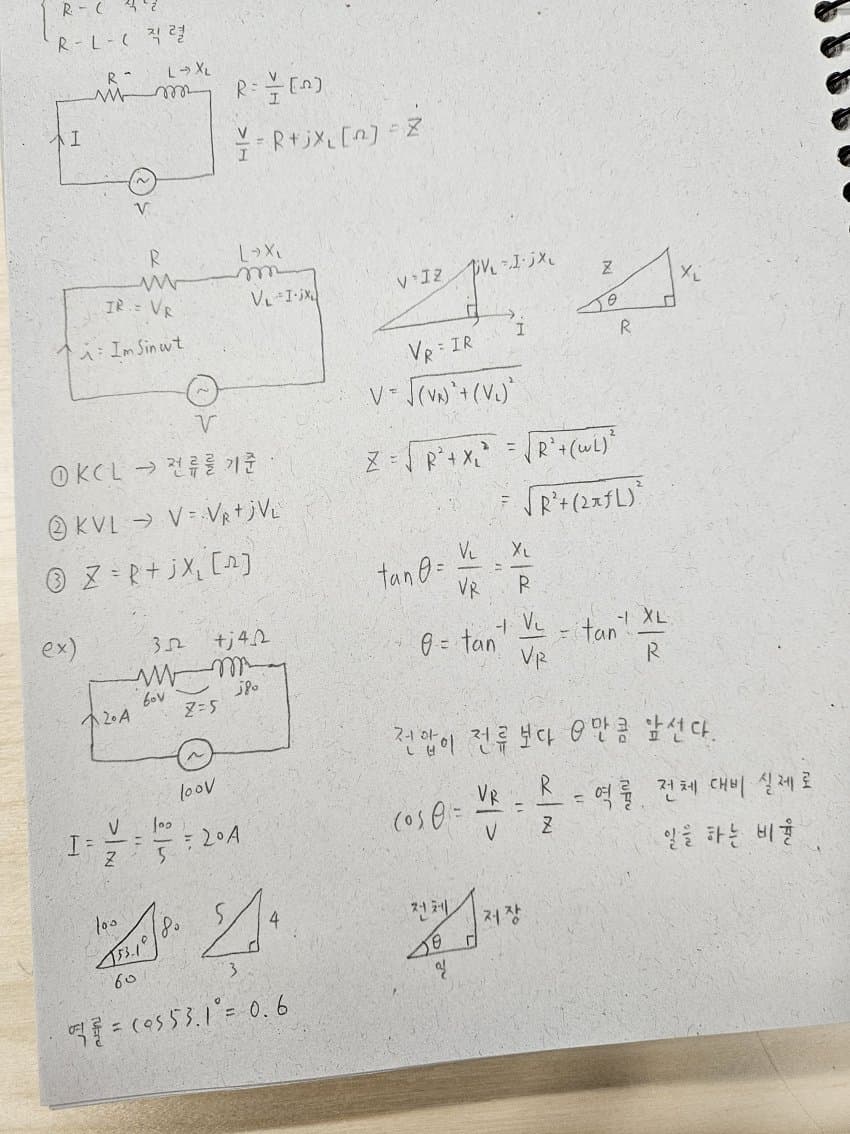 R - C 직렬
R - L - C 직렬
R
L→X_L
I
V
R = V/I [Ω]
V/I = R + jX_L [Ω] = Z
R
L→X_L
IR = V_R
V_L = I·jX_L
i = Im Sin wt
V
V = IZ
jV_L = I·jX_L
I
V_R = IR
Z
X_L
θ
R
V = √((V_R)² + (V_L)²)
① KCL → 전류를 기준
② KVL → V = V_R + jV_L
③ Z = R + jX_L [Ω]
Z = √(R² + X_L²) = √(R² + (wL)²)
= √(R² + (2πfL)²)
tan θ = V_L/V_R = X_L/R
θ = tan⁻¹ V_L/V_R = tan⁻¹ X_L/R
ex)
3Ω
+j4Ω
60V
j80
Z=5
20A
100V
I = V/Z = 100/5 = 20A
전압이 전류보다 θ만큼 앞선다.
cos θ = V_R/V = R/Z = 역률. 전체 대비 실제로
일을 하는 비율
100
80
53.1°
60
5
4
3
전체
저장
θ
일
역률 = cos 53.1° = 0.6